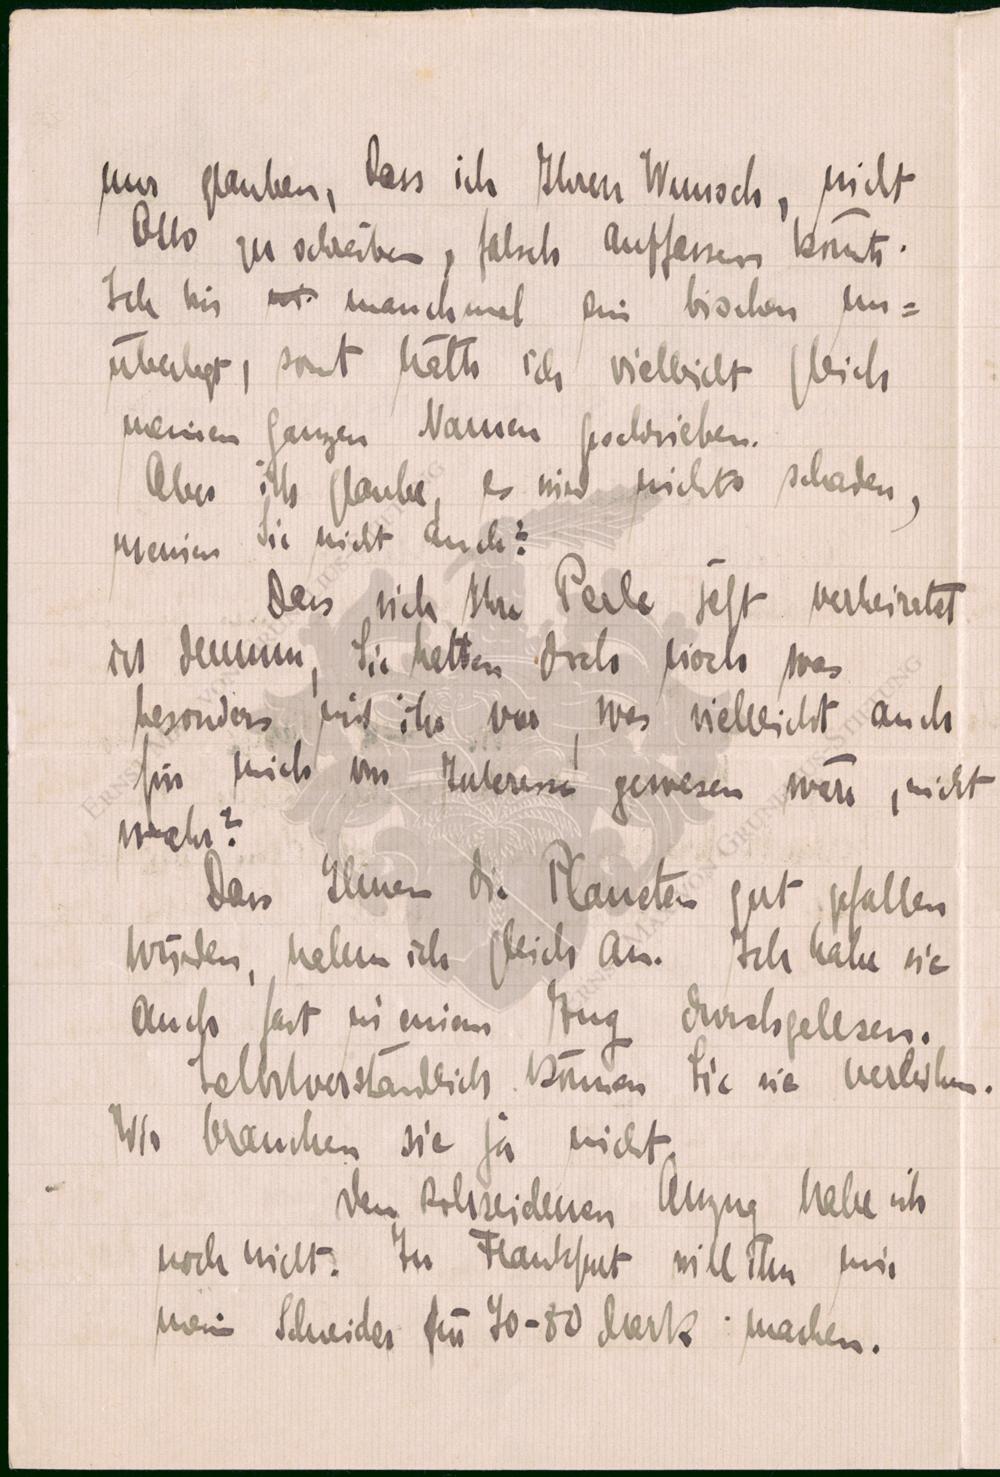 nur glauben, dass ich Ihren Wunsch, nicht
Otto zu schreiben, falsch auffassen könnte.
Ich bin manchmal ein bischen un=
überlegt, sonst hätte ich vielleicht gleich
meinen ganzen Namen geschrieben.
Aber ich glaube, es wird nichts schaden,
meinen Sie nicht auch?
Dass sich Ihre Perle jetzt verheiratet
ist dumm, Sie hatten doch noch was
besonders mit ihr vor, was vielleicht auch
für mich von Interesse gewesen wäre, nicht
wahr?
Dass Ihnen die Planeten gut gefallen
würden, nahm ich gleich an. Ich habe sie
auch fast in einem Zug durchgelesen.
Selbstverständlich können Sie sie verleihen.
Wir brauchen sie ja nicht.
Den rohseidenen Anzug habe ich
noch nicht. In Frankfurt will ihn mir
mein Schneider für 70-80 Mark machen.
ERNST MAX VON GRUNELIUS-STIFTUNG
ERNST MAX VON GRUNELIUS-STIFTUNG